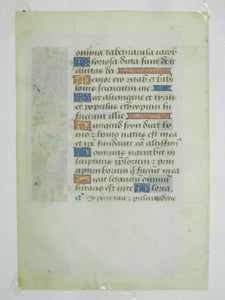 omnia tabernacula iacob
Gloriosa dicta sunt de te
ciuitas dei
Memor ero raab et babi
lonis scientium me
Ecce alienigene et tirus
et populus ethiopum hi
fuerunt illic
Nunquid syon dicet ho
mo et homo natus est in ea
et ipse fundauit eā altissim⁹
Dominus narrabit in
scripturis pp̄lorum et prin
cipum horum qui fuerunt in ea
Sicut letantium omniū
habitacio est in te Gloria.